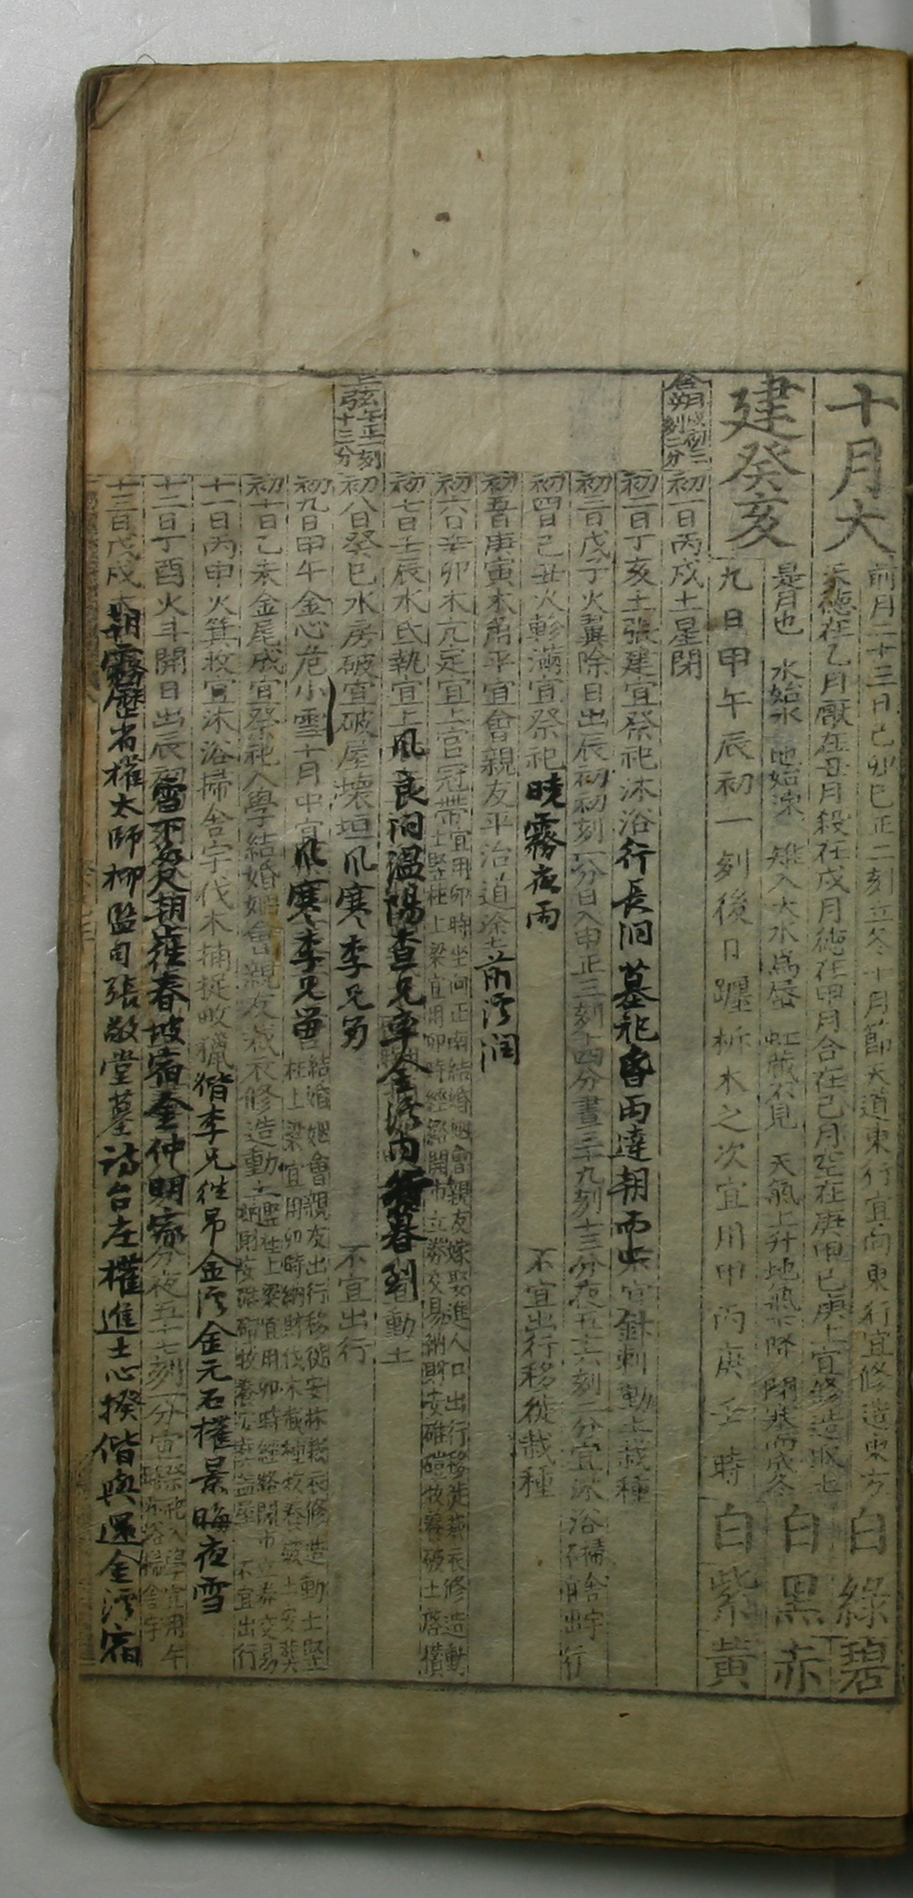 十月大
前月二十三日己卯巳正二刻立冬十月節天道東行宜向東行宜修造東方
天德在乙月厭在丑月殺在戌月德在甲月合在己月空在庚甲己庚上宜修造取土
是月也 水始氷 地始凍 雉入大水爲蜃 虹藏不見 天氣上升地氣下降 閉塞而成冬
建癸亥
九日甲午辰初一刻後日躔析木之次宜用甲丙庚壬時
白綠碧
白黑赤
白紫黃
合朔戌初二刻二分
初一日丙戌土星閉
初二日丁亥土張建宜祭祀沐浴 行長洞墓祀昏雨達朝而止 宜針刺動土栽種
初三日戊子火翼除日出辰初初刻一分日入申正三刻十四分晝三十九刻十三分夜五十六刻二分宜沐浴掃舍宇不宜出行
初四日己丑火軫滿宜祭祀 曉霧夜雨 不宜出行移徙栽種
初五日庚寅木角平宜會親友平治道塗 前浮洞
初六日辛卯木亢定宜上官冠帶宜用卯時坐向正南結婚姻會親友嫁娶進人口出行移徙裁衣修造動土竪柱上梁宜用卯時經絡開市立券交易納財安碓磑牧養破土啓欑
初七日壬辰水氐執宜上 風 良洞溫陽査兄率人金浮內 春到 動土
上弦午正一刻十三分
初八日癸巳水房破宜破屋壞垣 風寒李兄 不宜出行
初九日甲午金心危小雪十月中宜 風寒李兄 結婚姻會親友出行移徙安牀裁衣修造動土竪柱上梁宜用卯時納財伐木栽種牧養破土安葬
初十日乙未金尾成宜祭祀入學結婚姻會親友裁衣修造動土竪柱上梁宜用卯時經絡開市立券交易納財安碓磑牧養 不宜出行
十一日丙申火箕收宜沐浴掃舍宇伐木捕捉畋獵 偕李兄往吊金浮金元石權景晦夜雪
十二日丁酉火斗開日出辰初 雪不 朝 春坡宿金仲明 分夜五十七刻 分宜祭祀入學宜用午時沐浴掃舍宇
十三日戊戌木 朝霧歷省權太師柳監司張敬堂墓 台左權進士心揆偕與還金浮宿